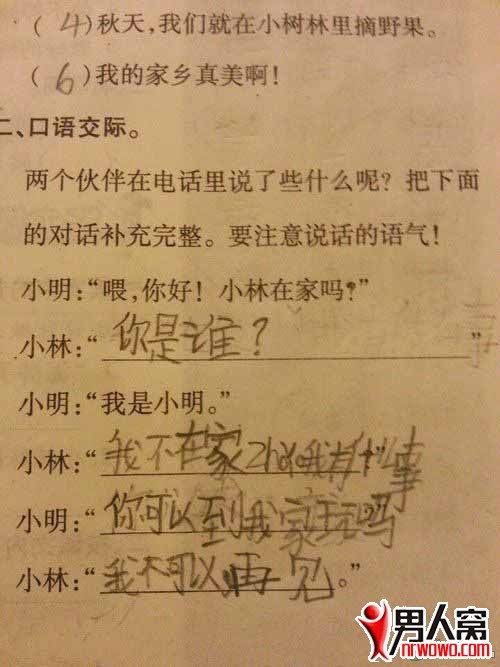 (4)秋天,我们就在小树林里摘野果。
(6)我的家乡真美啊!
二、口语交际。
两个伙伴在电话里说了些什么呢?把下面
的对话补充完整。要注意说话的语气!
小明:“喂,你好!小林在家吗?”
小林:“你是谁?”
小明:“我是小明。”
小林:“我不在家 zhǎo我有什么事
小明:“你可以到我家玩吗
小林:“我不可以再见。”
男人窝
nrwowo.com